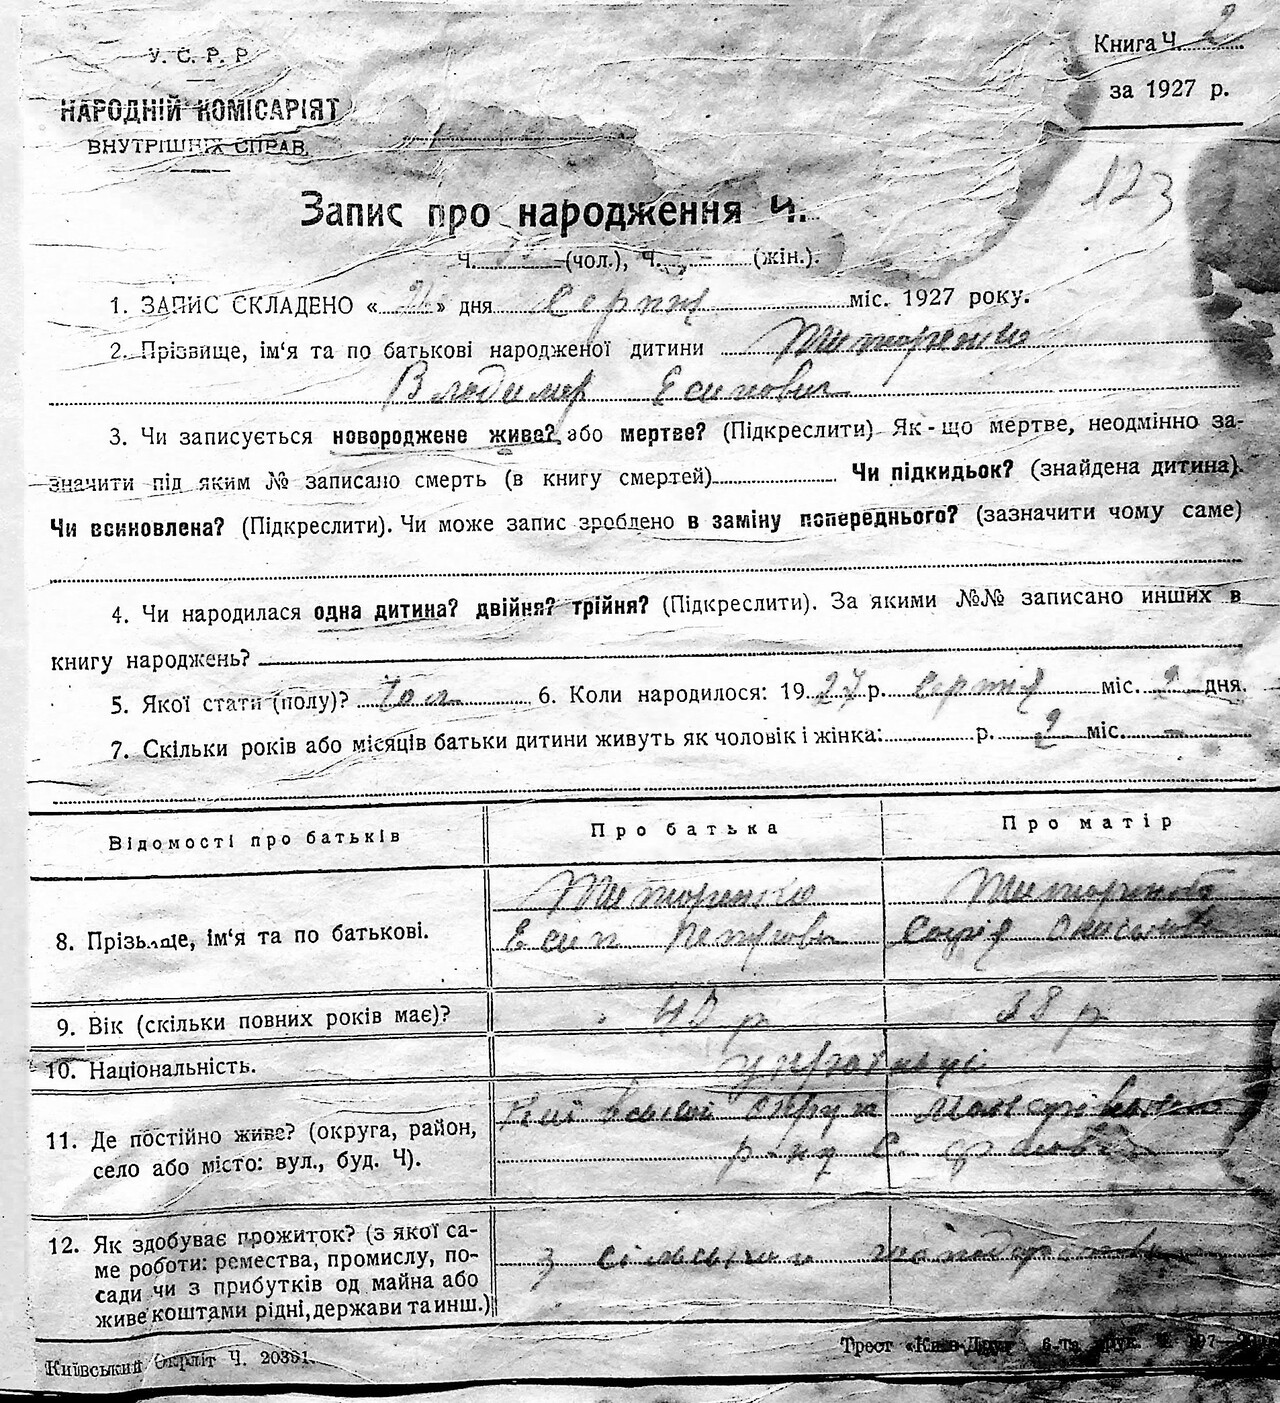 У. С. Р. Р
Книга Ч. 2
за 1927 р.
НАРОДНІЙ КОМІСАРІЯТ
ВНУТРІШНІХ СПРАВ.
123
Запис про народження Ч.
Ч. (чол.), Ч. (жін.).
1. ЗАПИС СКЛАДЕНО « » дня Серпня міс. 1927 року.
2. Прізвище, ім'я та по батькові народженої дитини Титоренко
Владимер Есипович
3. Чи записується новороджене живе? або мертве? (Підкреслити) Як-що мертве, неодмінно за-
значити під яким № записано смерть (в книгу смертей) Чи підкидьок? (знайдена дитина).
Чи всиновлена? (Підкреслити). Чи може запис зроблено в заміну попереднього? (зазначити чому саме)
4. Чи народилася одна дитина? двійня? трійня? (Підкреслити). За якими №№ записано инших в
книгу народжень?
5. Якої стати (полу)? чол 6. Коли народилося: 1927 р. серпня міс. 2 дня.
7. Скільки років або місяців батьки дитини живуть як чоловік і жінка: р. 9 міс. –
Відомості про батьків
Про батька
Про матір
8. Прізьвище, ім'я та по батькові.
Титоренко
Есип Петрович
Титоренкова
Софія
9. Вік (скільки повних років має)?
р
38 р
10. Національність.
українці
11. Де постійно живе? (округа, район,
село або місто: вул., буд. Ч).
Київської округи
р-ну с.
12. Як здобуває прожиток? (з якої са-
ме роботи: ремества, промислу, по-
сади чи з прибутків од майна або
живе коштами рідні, держави та инш.)
з сільського господарства
Київський Окрліт Ч. 20351.
Трест «Київ-Друк» 6-та друк.